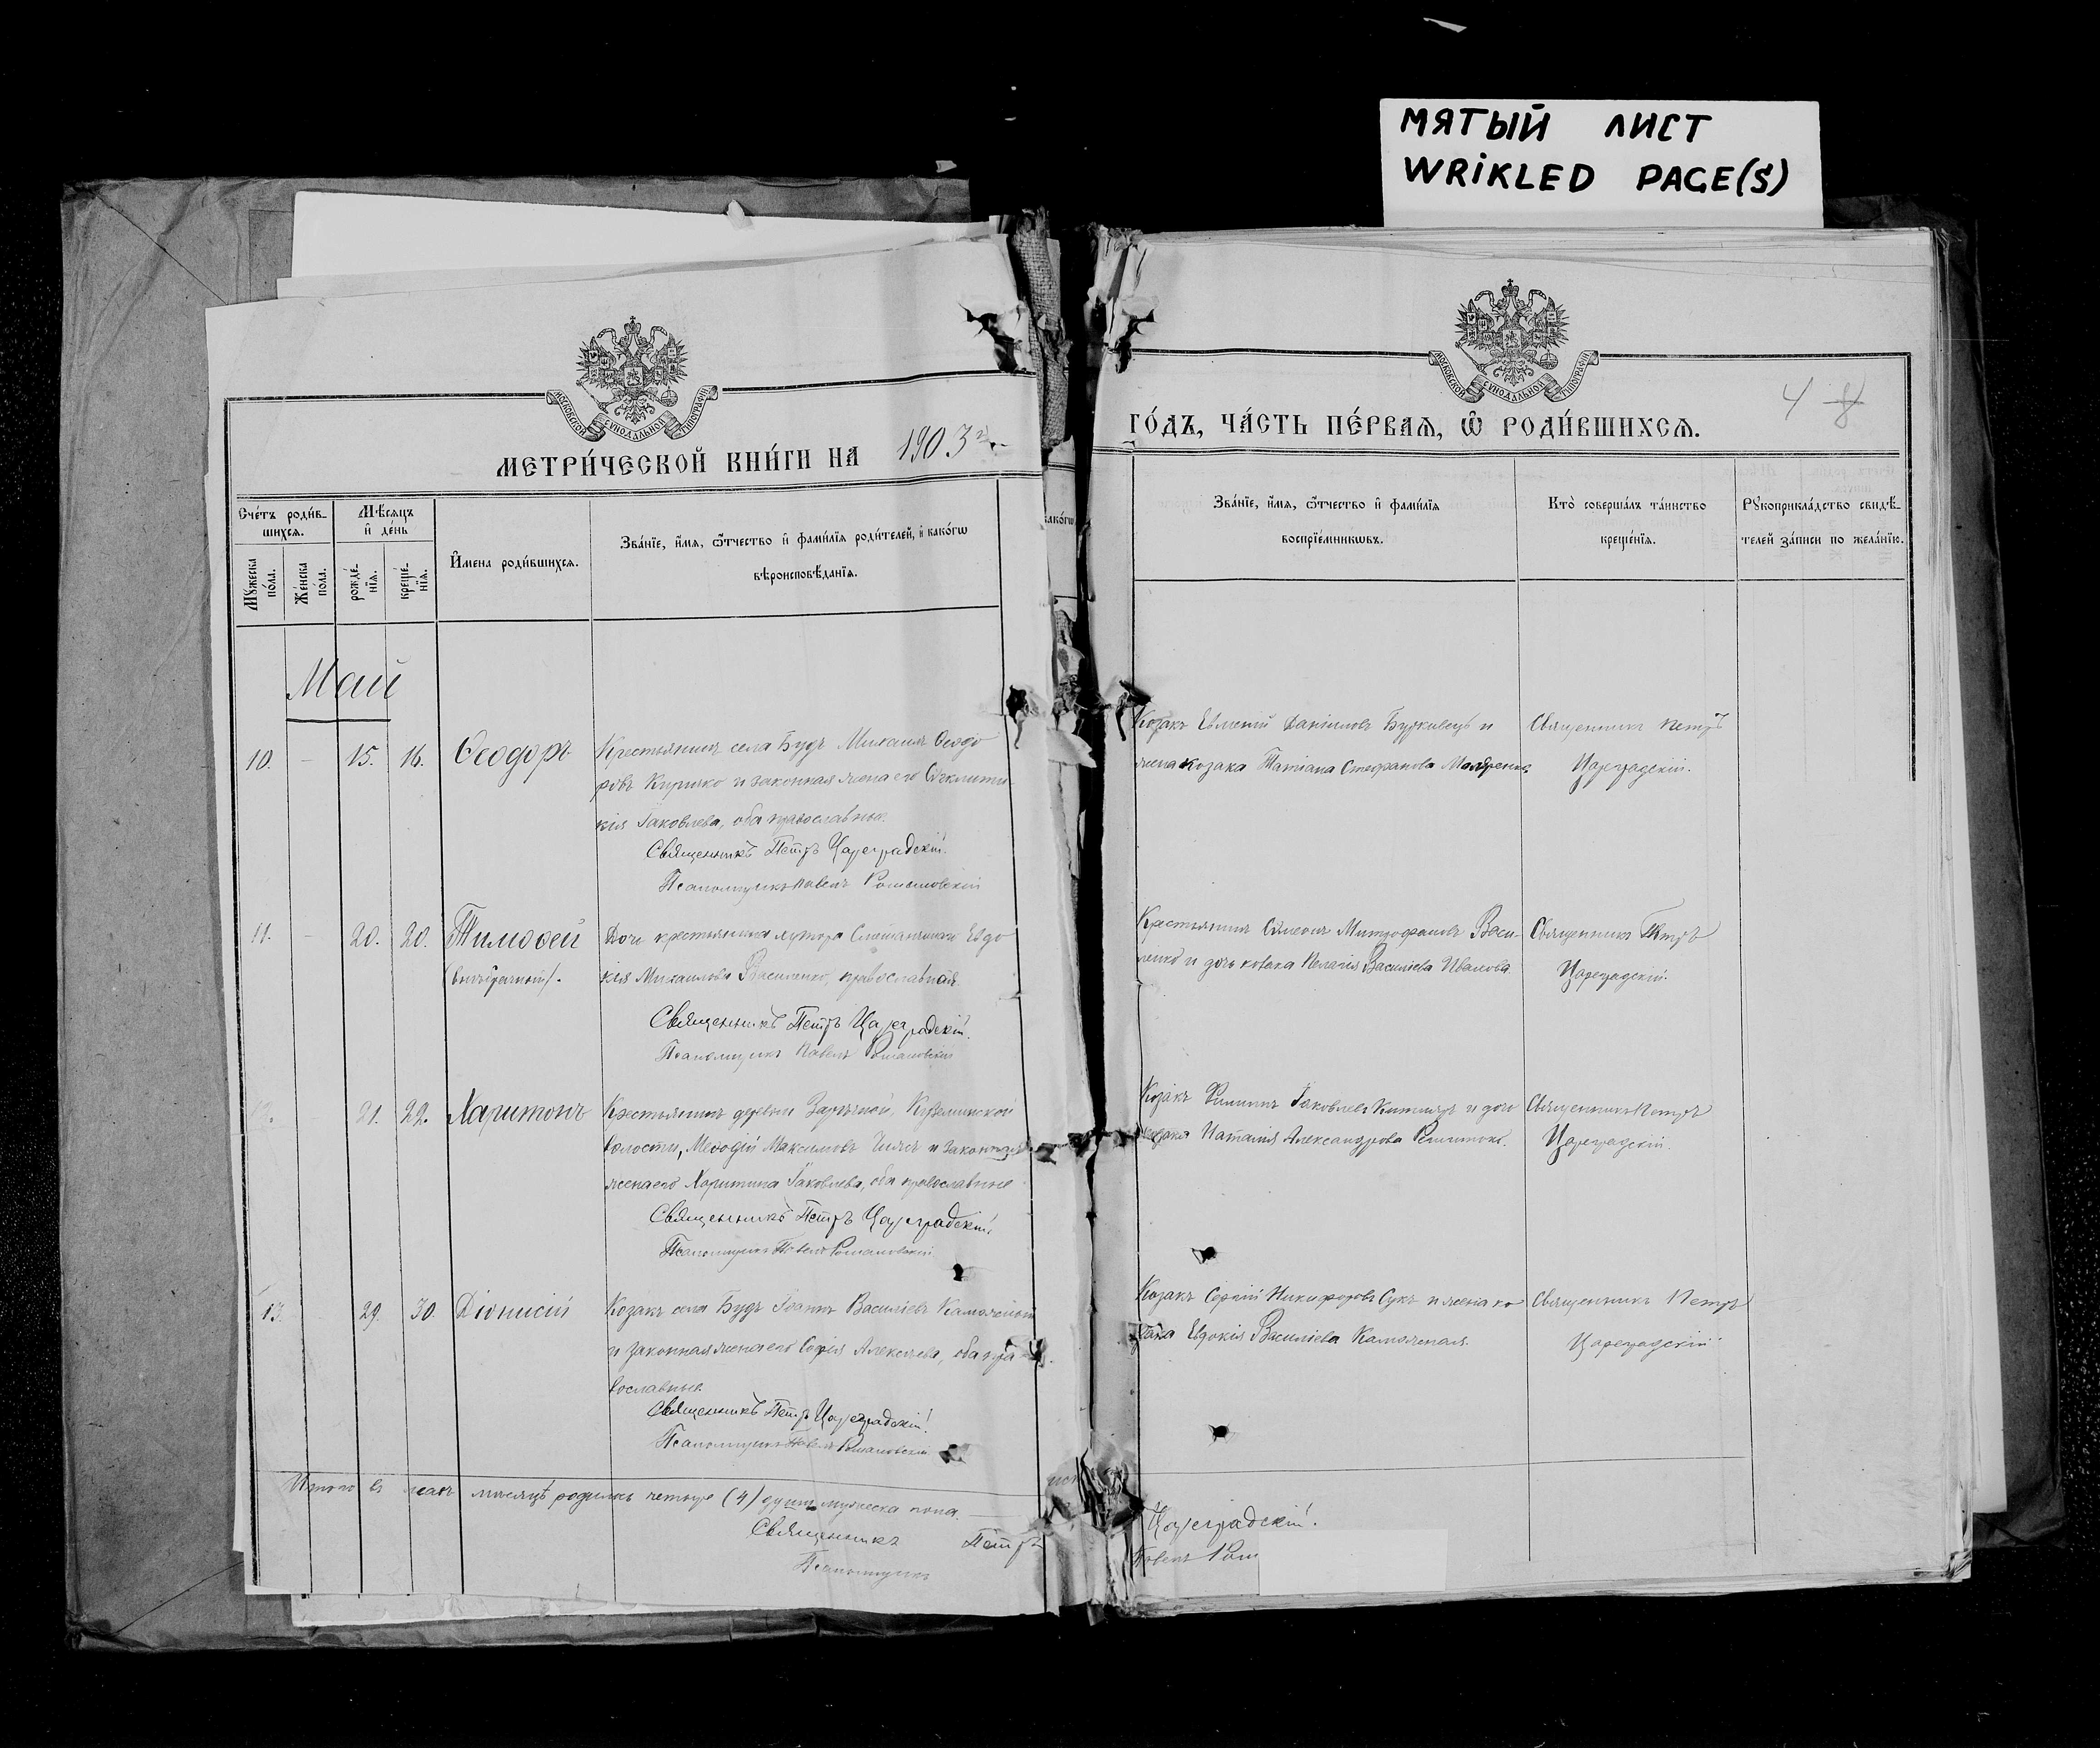 МЯТЫЙ ЛИСТ
WRIKLED PAGE(S)
МОСКОВСКОЙ СУНОДАЛЬНОЙ ТИПОГРАФІИ
МЕТРИ́ЧЕСКОЙ КНИ́ГИ НА 1903 г.
Сче́тъ роди́в-
шихсѧ.
Мѣ́сѧцъ
и҆ де́нь
Мꙋ́жеска
по́ла.
Же́нска
по́ла.
рожде́-
нїѧ.
креще́-
нїѧ.
И҆мена роди́вшихсѧ.
Зва́нїе, и҆́мѧ, ѻ҆́тчество и҆ фами́лїѧ роди́телей, и҆ како́гѡ
вѣроисповѣ́данїѧ.
Май
10. - 15. 16. Ѳеодоръ
Крестьянинъ села Будъ Михаилъ Ѳеодо
ровъ Кирико и законная жена его Сѵнклити
кія Іаковлева, оба православные.
Священникъ Петръ Цареградскій.
Псаломщикъ Павелъ Романовскій
11. - 20. 20. Тимоѳей
(внѣбрачный).
Дочь крестьянина хутора Евдо
кія Михаилова Василенко, православная
Священникъ Петръ Цареградскій.
Псаломщикъ Павелъ Романовскій
12. 21. 22. Харитонъ
Крестьянинъ деревни Зарѣчной,
волости, Меѳодій Максимовъ и законная
жена его Харитина Іаковлева, оба православные
Священникъ Петръ Цареградскій.
Псаломщикъ Павелъ Романовскій
13. 29. 30. Діонисій
Козакъ села Будъ Іоаннъ Василіевъ
и законная жена его Софія Алексѣева, оба пра-
вославные.
Священникъ Петръ Цареградскій.
Псаломщикъ Павелъ Романовскій
Итого въ маѣ мѣсяцѣ родилось четыре (4) души мужеска пола.
Священникъ Петръ
Псаломщикъ
МОСКОВСКОЙ СУНОДАЛЬНОЙ ТИПОГРАФІИ
4 8
ГО́ДЪ, ЧА́СТЬ ПЕ́РВАѦ, Ѡ҆ РОДИ́ВШИХСѦ.
Зва́нїе, и҆́мѧ, ѻ҆́тчество и҆ фами́лїѧ
воспрїе́мникѡвъ.
Кто̀ соверша́лъ та́инство
креще́нїѧ.
Рꙋкоприкла́дство свидѣ́-
телей за́писи по жела́нїю.
Козакъ Евменій Даніиловъ Бурковецъ и
жена козака Татіана Стефанова Маляренко.
Священникъ Петръ
Цареградскій.
Крестьянинъ Сѵмеонъ Митрофановъ Васи-
ленко и дочь козака Пелагія Василіева Иванова
Священникъ Петръ
Цареградскій.
Козакъ Филиппъ Іаковлевъ и дочь
козака Наталія Александрова
Священникъ Петръ
Цареградскій.
Козакъ Сергій Никифоровъ Сукъ и жена ко
зака Евдокія Василіева
Священникъ Петръ
Цареградскій
Цареградскій.
Павелъ Ром